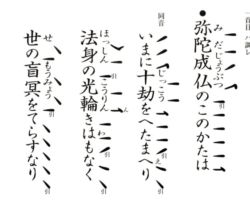 一首目 ハ調レ
●弥陀成仏のこのかたは
みだじょうぶつ
引
回音
いまに十劫をへたまへり
じっこう
え
引
法身の光輪きはもなく
ほっしん
こうりん
わ
ん
引
世の盲冥をてらすなり
せ
もうみょう
引